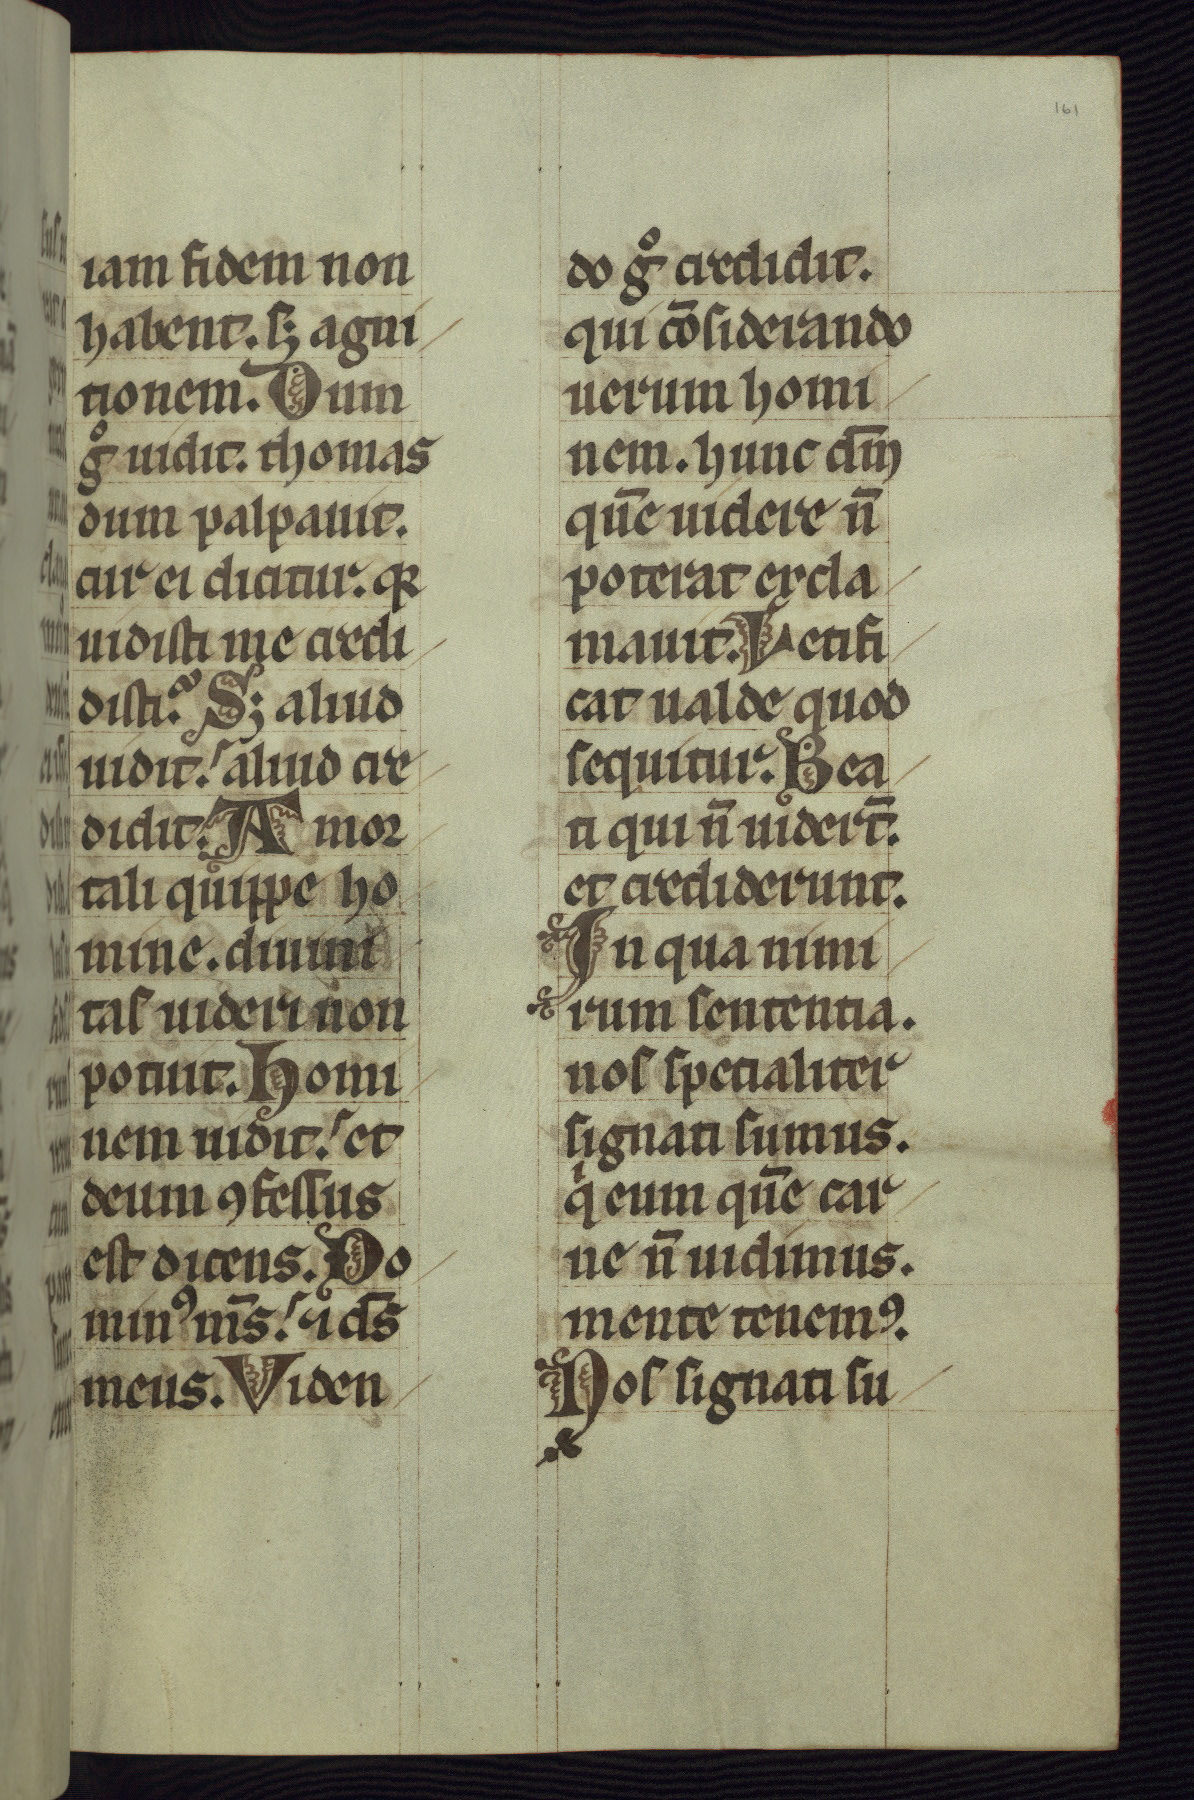 161
iam fidem non
habent. sꝫ agni
tionem. Dum
gͦ uidit. thomas
dum palpauit.
cur ei dicitur. qꝛ
uidisti me credi
disti? Sꝫ aliud
uidit. aliud cre
didit. A mor
tali quippe ho
mine. diuini
tas uideri non
potuit. Homi
nem uidit. et
deum ꝯfessus
est dicens. Do
minꝰ ms̄. ⁊ ds̄
meus. Viden
do gͦ credidit.
qui cōsiderando
uerum homi
nem. hunc dm̄
quē uidere n̄
poterat excla
mauit. Letifi
cat ualde quod
sequitur. Bea
ti qui n̄ uidert̄.
et crediderunt.
In qua nimi
rum sententia.
nos specialiter
signati sumus.
qͥ eum quē car
ne n̄ uidimus.
mente tenemꝰ.
Nos signati su